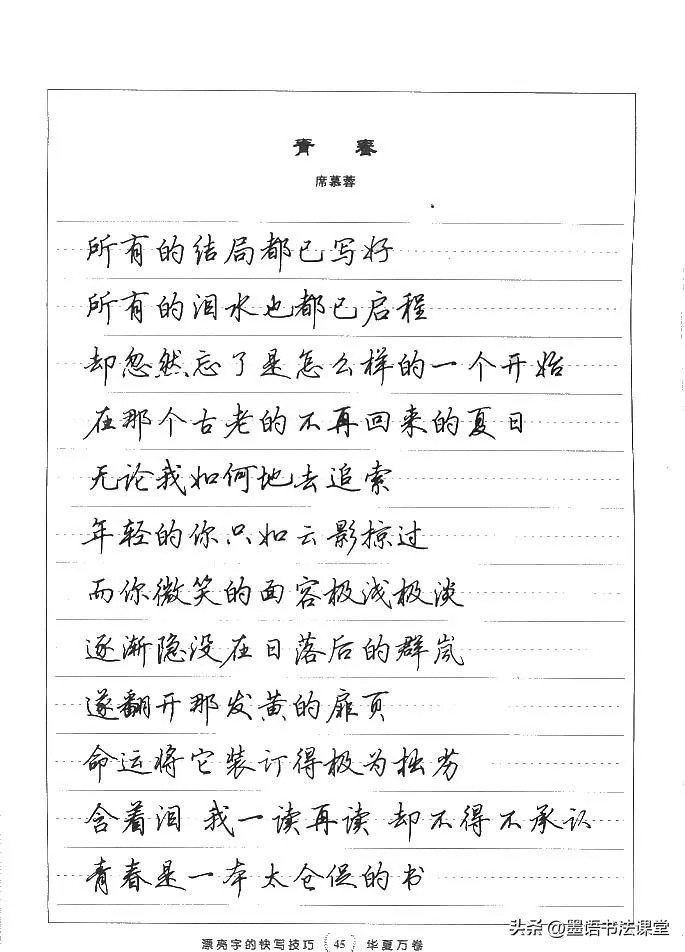 青 春
席慕蓉
所有的结局都已写好
所有的泪水也都已启程
却忽然忘了是怎么样的一个开始
在那个古老的不再回来的夏日
无论我如何地去追索
年轻的你只如云影掠过
而你微笑的面容极浅极淡
逐渐隐没在日落后的群岚
遂翻开那发黄的扉页
命运将它装订得极为拙劣
含着泪 我一读再读 却不得不承认
青春是一本太仓促的书
漂亮字的快写技巧 45 华夏万卷
头条@墨语书法课堂